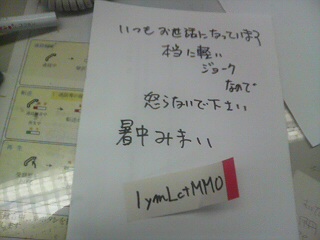 いつもお世話になっています
本当に軽い
ジョーク
なので
怒らないで下さい
暑中みまい
1ymLctMMO